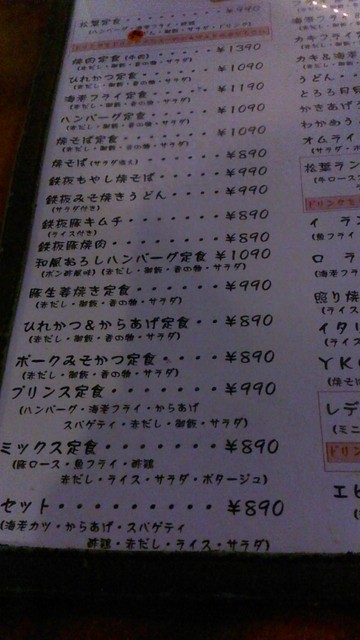 松葉定食・・・・・・・・・¥990
焼肉定食(牛肉)・・・・・・¥1390
(赤だし・御飯・香の物・サラダ)
ひれかつ定食・・・・・・・¥1090
(赤だし・御飯・香の物・サラダ)
海老フライ定食・・・・・・¥1190
(赤だし・御飯・香の物・サラダ)
ハンバーグ定食・・・・・・¥1090
(赤だし・御飯・香の物・サラダ)
焼そば定食・・・・・・・・¥1090
(赤だし・御飯・香の物・サラダ)
焼そば(サラダ付き)・・・・¥890
鉄板もやし焼そば・・・・・¥890
鉄板みそ焼きうどん・・・・¥890
(サラダ付き)
鉄板豚キムチ・・・・・・・¥890
(ライス付き)
鉄板豚焼肉・・・・・・・・¥890
和風おろしハンバーグ定食 ¥1090
(ポン酢風味)(赤だし・御飯・香の物・サラダ)
豚生姜焼き定食・・・・・・¥890
(赤だし・御飯・香の物・サラダ)
ひれかつ&からあげ定食・・・¥890
(赤だし・御飯・香の物・サラダ)
ポークみそかつ定食・・・・¥890
(赤だし・御飯・香の物・サラダ)
プリンス定食・・・・・・・¥990
(ハンバーグ・海老フライ・からあげ
スパゲティ・赤だし・御飯・サラダ)
ミックス定食・・・・・・・¥890
(豚ロース・魚フライ・酢鶏
赤だし・ライス・サラダ・ポタージュ)
セット・・・・・・・・・¥890
(海老カツ・からあげ・スパゲティ
酢鶏・赤だし・ライス・サラダ)
海老フライ
カキフライ
カキ&海老
うどん
とろろ
かきあげ
わかめう
オムライ
松葉ラン
(牛ロース
ドリンク
イ ラ
(魚フライ
ロ ラ
(海老フラ
照り焼
(ライス
イタリ
(ライス
YK
(焼そば
レデ
(ミニ
ドリン
エビ